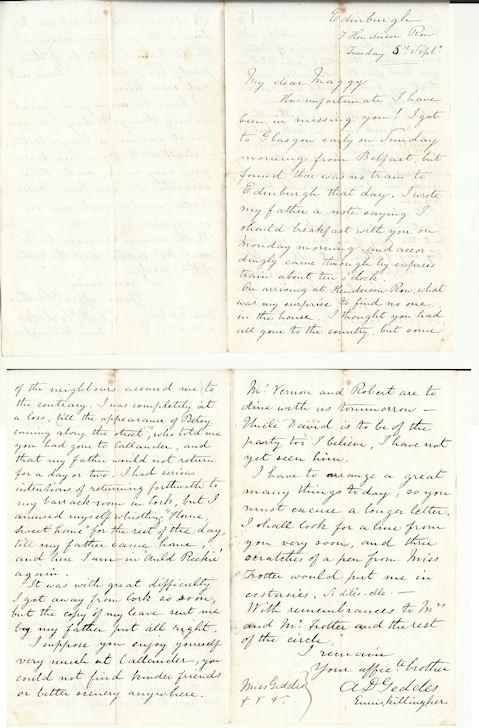 Edinburgh
7 Henderson Row
Tuesday 5th Septr
My dear Maggy
How unfortunate I have
been in missing you! I got
to Glasgow early on Sunday
morning from Belfast, but
found there was no train to
Edinburgh that day. I wrote
my father a note saying I
should breakfast with you on
Monday morning and accor-
dingly came through by express
train about ten o'clock.
On arriving at Henderson Row, what
was my surprise to find no one
in the house. I thought you had
all gone to the country, but some
of the neighbours assured me to
the contrary. I was completely at
a loss, till the appearance of Betsy
coming along the street, who told me
you had gone to Callander, and
that my father would not return
for a day or two. I had serious
intentions of returning forthwith to
my barrack-room in Cork, but I
amused myself whistling "Home,
sweet home" for the rest of the day,
till my father came home,
and here I am in Auld Reekie
again.
It was with great difficulty
I got away from Cork so soon,
but the copy of my leave sent me
by my father put all right.
I suppose you enjoy yourself
very much at Callander, you
could not find kinder friends
or better scenery anywhere.
Mr Vernon and Robert are to
dine with us tommorrow —
Uncle David is to be of the
party too I believe, I have not
yet seen him.
I have to arrange a great
many things to day, so you
must excuse a longer letter.
I shall look for a line from
you very soon, and three
scratches of a pen from Miss
Trotter would put me in
ecstasies.
With remembrances to Mrs
and Mr Trotter and the rest
of the circle,
I remain
Your affecte brother
A D Geddes
Miss Geddes